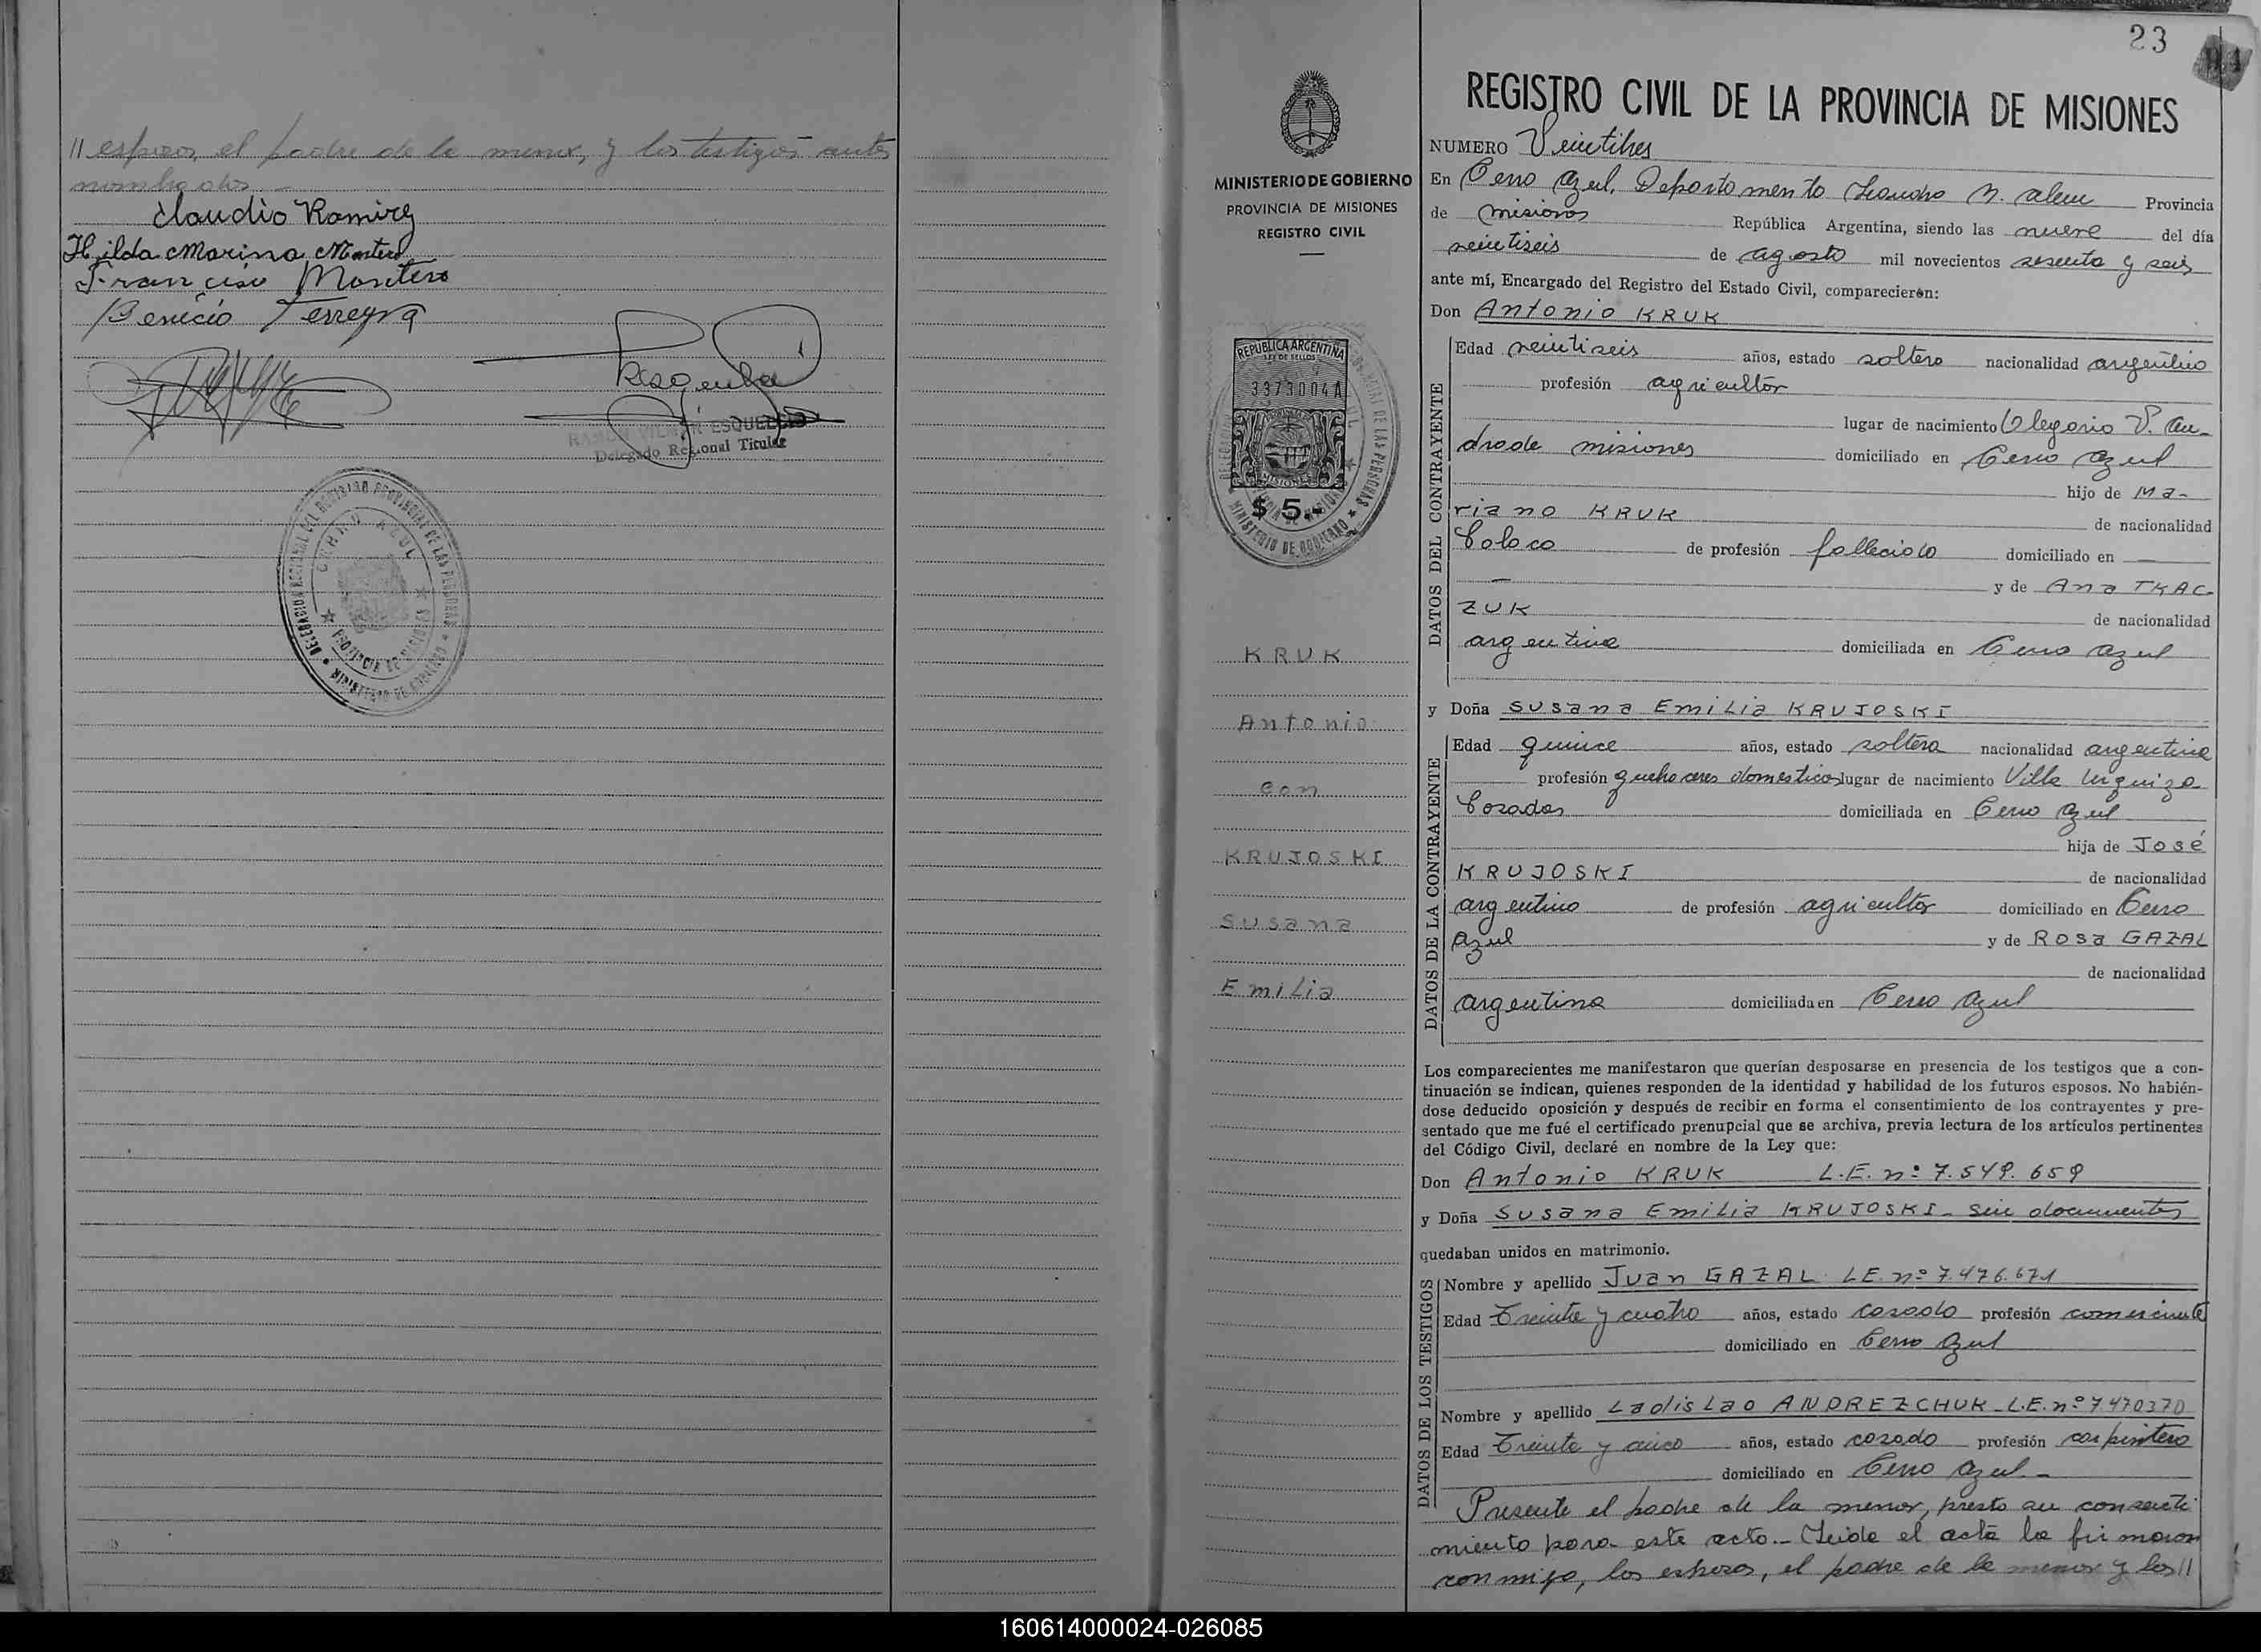 // esposos, el padre de la menor, y los testigos antes
nombrados.-
Claudio Ramirez
Hilda Marina Montero
Francisco Montero
Benicio Ferreyra
Delegado Regional Titular
CERRO AZUL
PROVINCIA DE MISIONES
MINISTERIO DE GOBIERNO
MINISTERIO DE GOBIERNO
PROVINCIA DE MISIONES
REGISTRO CIVIL
REPUBLICA ARGENTINA
LEY DE SELLOS
3373004A
MISIONES
$ 5.-
MINISTERIO DE GOBIERNO
KRUK
Antonio
con
KRUJOSKI
Susana
Emilia
23
REGISTRO CIVIL DE LA PROVINCIA DE MISIONES
NUMERO Veintitres
En Cerro Azul, Departamento Leandro N. Alem Provincia
de Misiones República Argentina, siendo las nueve del día
veintiseis de agosto mil novecientos sesenta y seis
ante mí, Encargado del Registro del Estado Civil, comparecieron:
Don Antonio KRUK
DATOS DEL CONTRAYENTE
Edad veintiseis años, estado soltero nacionalidad argentino
profesión agricultor
lugar de nacimiento Olegario V. An-
drade Misiones domiciliado en Cerro Azul
hijo de Ma-
riano KRUK de nacionalidad
Polaco de profesión fallecido domiciliado en —
— y de Ana TKAC-
ZUK de nacionalidad
argentina domiciliada en Cerro Azul
y Doña Susana Emilia KRUJOSKI
DATOS DE LA CONTRAYENTE
Edad quince años, estado soltera nacionalidad argentina
profesión quehaceres domesticos lugar de nacimiento Villa Urquiza
Posadas domiciliada en Cerro Azul
hija de José
KRUJOSKI de nacionalidad
argentino de profesión agricultor domiciliado en Cerro
Azul y de Rosa GAZAL
de nacionalidad
argentina domiciliada en Cerro Azul
Los comparecientes me manifestaron que querían desposarse en presencia de los testigos que a con-
tinuación se indican, quienes responden de la identidad y habilidad de los futuros esposos. No habién-
dose deducido oposición y después de recibir en forma el consentimiento de los contrayentes y pre-
sentado que me fué el certificado prenupcial que se archiva, previa lectura de los artículos pertinentes
del Código Civil, declaré en nombre de la Ley que:
Don Antonio KRUK L.E. nº 7.549.659
y Doña Susana Emilia KRUJOSKI - sin documentos
quedaban unidos en matrimonio.
DATOS DE LOS TESTIGOS
Nombre y apellido Juan GAZAL L.E. nº 7.476.671
Edad Treinta y cuatro años, estado casado profesión comerciante
domiciliado en Cerro Azul
Nombre y apellido Ladislao ANDREZCHUK - L.E. nº 7.470370
Edad Treinta y cinco años, estado casado profesión carpintero
domiciliado en Cerro Azul.-
Presente el padre de la menor, presto su consenti-
miento para este acto.- Leida el acta la firmaron
conmigo, los esposos, el padre de la menor y los //
160614000024-026085